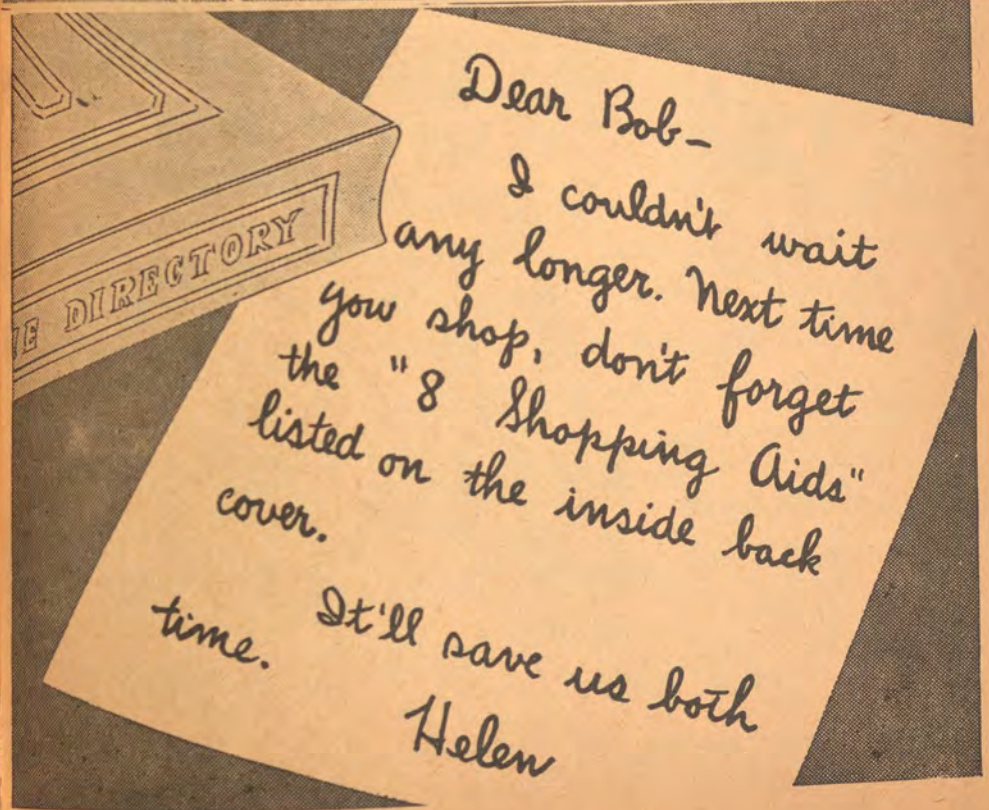 E DIRECTORY
Dear Bob-
I couldn't wait
any longer. Next time
you shop, don't forget
the "8 Shopping Aids"
listed on the inside back
cover.
It'll save us both
time.
Helen